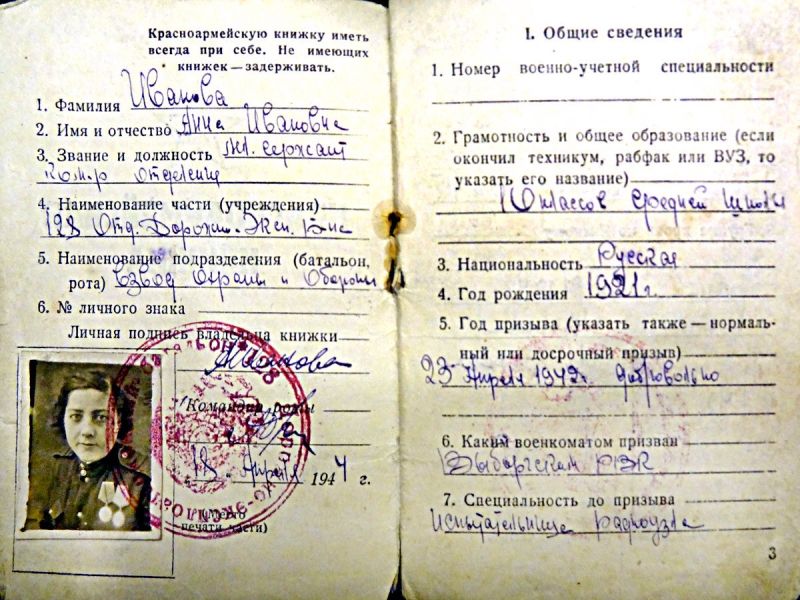 Красноармейскую книжку иметь
всегда при себе. Не имеющих
книжек — задерживать.
1. Фамилия Иванова
2. Имя и отчество Анна Ивановна
3. Звание и должность мл. сержант
Ком-р отделения
4. Наименование части (учреждения)
128 Отд. Дорожн. Эксп.
5. Наименование подразделения (батальон,
рота) взвод Охраны и Обороны
6. № личного знака
Личная подпись владельца книжки
Иванова
Командир роты
18 Апреля 1944 г.
(Место
печати части)
I. Общие сведения
1. Номер военно-учетной специальности
2. Грамотность и общее образование (если
окончил техникум, рабфак или ВУЗ, то
указать его название)
10 классов средней школы
3. Национальность Русская
4. Год рождения 1921 г.
5. Год призыва (указать также — нормаль-
ный или досрочный призыв)
23 Апреля 1942 г. добровольно
6. Каким военкоматом призван
Выборгским РВК
7. Специальность до призыва
Испытательница радиоузла
3